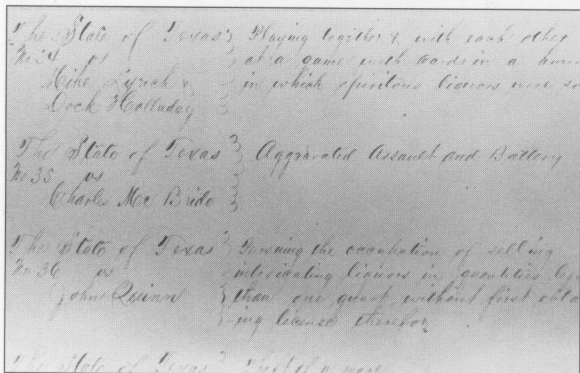 The State of Texas } Playing together & with each other
No 34 vs } at a game with cards in a house
Mike Lynch & } in which spiritous liquors were so
Dock Holladay }
The State of Texas } Aggravated Assault and Battery
No 35 vs }
Charles Mc Bride }
The State of Texas } Pursuing the occupation of selling
No 36 vs } intoxicating liquors in quantities les
John Quinn } than one quart, without first obta
} ing license therefor
The State of Texas } Theft of a mare